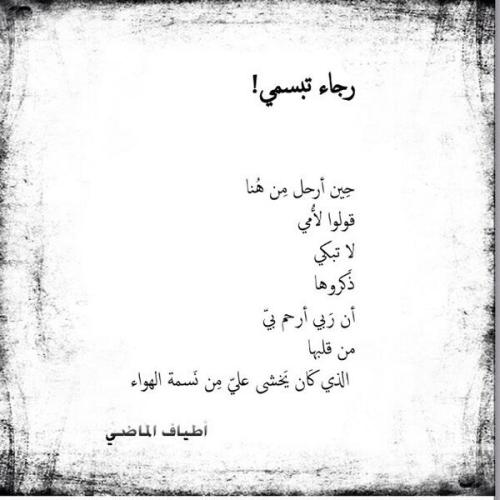 رجاء تبسمي!
حِين أرحل مِن هُنا
قولوا لأُمي
لا تبكي
ذَكروها
أن رَبي أرحم بيّ
من قلبها
الذي كَان يَخشى عليّ مِن نَسمة الهواء
أطياف الماضي